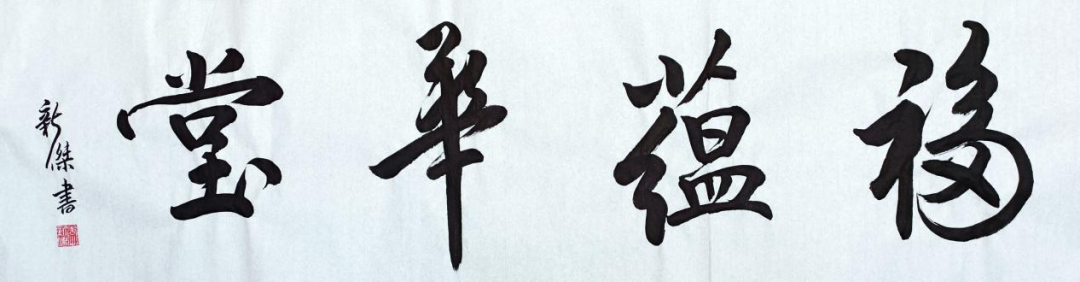 福蘊華堂
新傑書